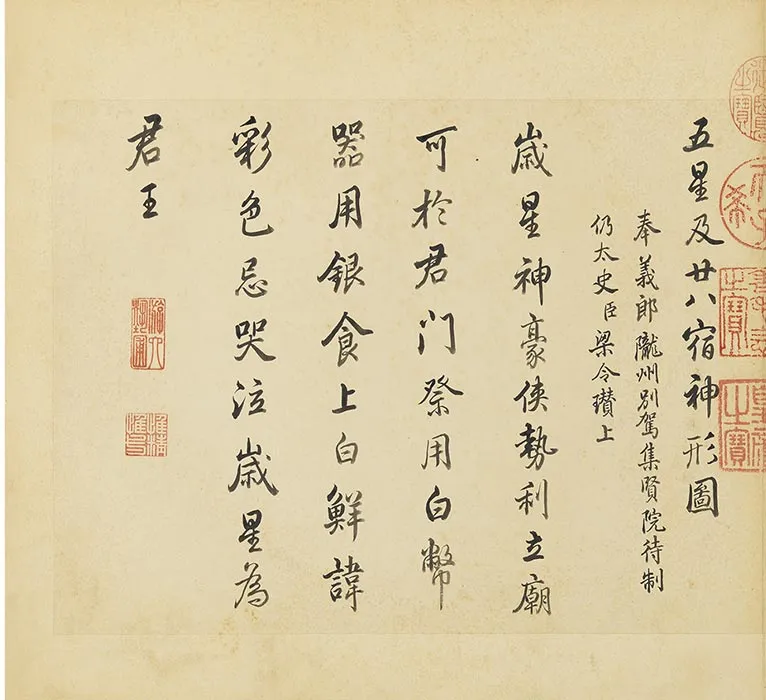 五星及廿八宿神形圖
奉義郎隴州別駕集賢院待制
仍太史臣梁令瓚上
歲星神豪俠勢利立廟
可於君門祭用白幣
器用銀食上白鮮諱
彩色忌哭泣歲星為
君王